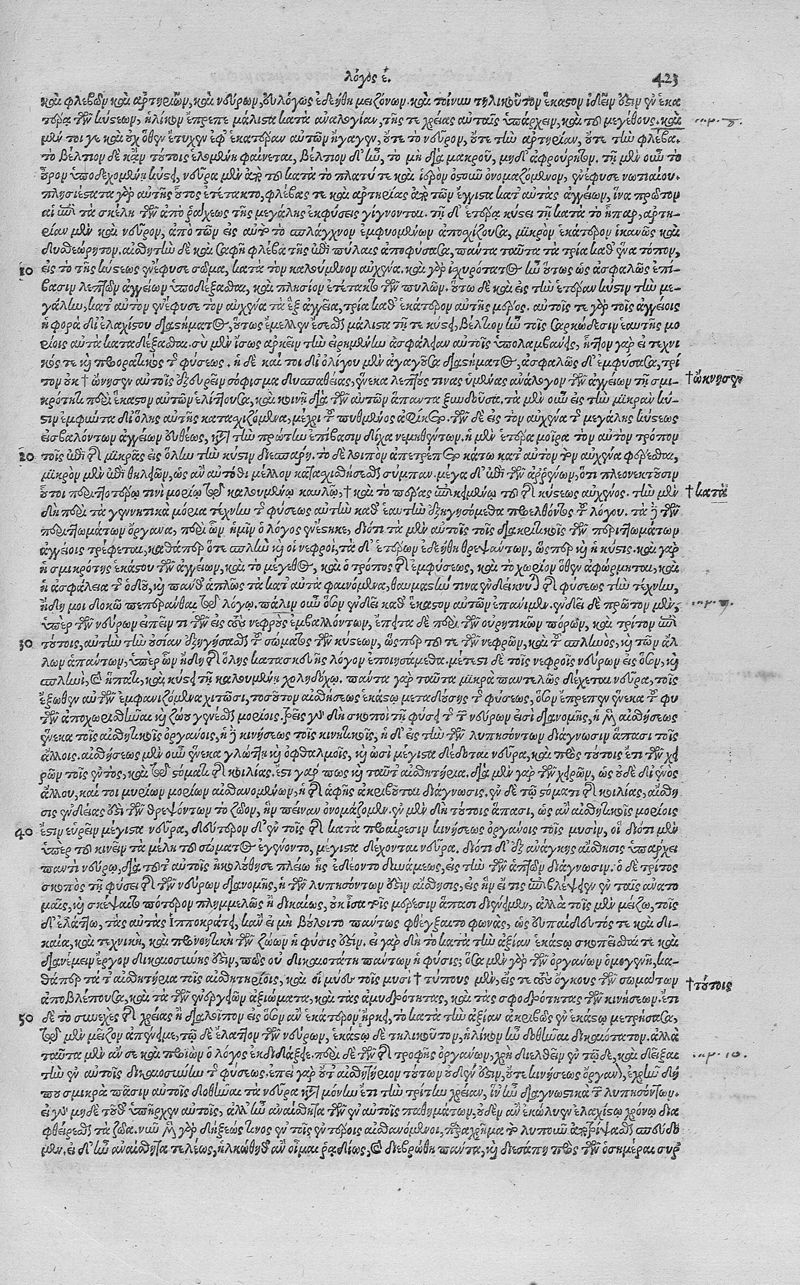 λόγος ε΄. 423
καὶ φλεβῶν καὶ ἀρτηριῶν, καὶ νεύρων, εὐλόγως ἐδεήθη μειζόνων. καὶ τοίνυν τηλικοῦτον ἕκαστον ἰδεῖν ἔστιν ἐν ἑκα
τέρᾳ τῶν κύσεων, ἡλίκον ἔπρεπε μάλιστα κατὰ ἀναλογίαν, τῆς τε χρείας αὐταῖς ὑπάρχειν, καὶ τοῦ μεγέθους. καὶ
μέν τοι γε καὶ οὐχ ὅθεν ἔτυχεν ἐφ' ἑκατέραν αὐτῶν ἤγαγεν, οὔτε τὸ νεῦρον, οὔτε τὴν ἀρτηρίαν, οὔτε τὴν φλέβα.
τὸ βέλτιον δὲ κἀν τούτοις ἑλομένη φαίνεται, βέλτιον δ' ἦν, τὸ μὴ διὰ μακροῦ, μηδ' ἀφρούρητον. τῇ μὲν οὖν τὸ
οὖρον ὑποδεχομένῃ κύσει, νεῦρα μὲν ἀπὸ τοῦ κατὰ τὸ πλατύ τε καὶ ἱερὸν ὀστοῦν ὀνομαζόμενον, ἐνέφυσε νωτιαίου.
πλησιέστατα γὰρ αὐτῆς οὗτος ἐτέτακτο, φλέβας τε καὶ ἀρτηρίας ἀπὸ τῶν ἔγγιστα κατ' αὐτὰς ἀγγείων, ἵνα πρῶτον
αἱ ἐπὶ τὰ σκέλη τῶν ἀπὸ ῥάχεως τῆς μεγάλης ἐκφύσεις γίγνονται. τῇ δ' ἑτέρᾳ κύσει τῇ κατὰ τὸ ἧπαρ, ἀρτη-
ρίαν μὲν καὶ νεῦρον, ἀπὸ τῶν εἰς αὐτὸ τὸ σπλάγχνον ἐμφυομένων ἀποσχίζουσα, μικρὸν ἑκάτερον ἱκανῶς καὶ
δυσθεώρητον. αἰσθητὴν δὲ καὶ σαφῆ φλέβα τῆς ἐπὶ πύλαις ἀποφύσασα, πάντα ταῦτα τὰ τρία καθ' ἕνα τόπον,
10 εἰς τὸ τῆς κύσεως ἐνέφυσε σῶμα, κατὰ τὸν καλούμενον αὐχένα. καὶ γὰρ ἰσχυρότατος ἦν οὗτος ὡς ἀσφαλῶς ἐπί-
βασιν λεπτῶν ἀγγείων ὑποδέξασθαι, καὶ πλησίον ἐτέτακτο τῶν πυλῶν. οὕτω δὲ καὶ εἰς τὴν ἑτέραν κύσιν τὴν με-
γάλην, κατ' αὐτὸν ἐνέφυσε τὸν αὐχένα τὰ ἓξ ἀγγεῖα, τρία καθ' ἑκάτερον αὐτῆς μέρος. αὐτοῖς τε γὰρ τοῖς ἀγγείοις
ἡ φορὰ δι' ἐλαχίστου διαστήματος, οὕτως ἔμελλεν ἔσεσθαι μάλιστα τῇ τε κύσει, βέλτιον ἦν τοῖς σαρκώδεσιν ἑαυτῆς μο
ρίοις αὐτὰ καταδέξασθαι. σὺ μὲν ἴσως ἀρκεῖν τὴν εἰρημένην ἀσφάλειαν αὐτοῖς ὑπολαμβάνεις, ἧττον γὰρ εἶ τεχνι
κός τε καὶ προορατικὸς τῆς φύσεως. ἡ δὲ καί τοι δι' ὀλίγου μὲν ἀγαγοῦσα διαστήματος, ἀσφαλῶς δ' ἐμφύσασα, τρί
τον οὐκ † ὤνησεν αὐτοῖς ἐξευρεῖν σόφισμα δυσπαθείας, ἕνεκα λεπτούς τινας ὑμένας ἀνάλογον τῶν ἀγγείων τῇ σμι- †ὤκνησεν
κρότητι περὶ ἕκαστον αὐτῶν ἑλίττουσα, καὶ κοινῇ διὰ τῶν αὐτῶν ἅπαντα ξυνδοῦσα. τὰ μὲν οὖν εἰς τὴν μικρὰν κύ-
σιν ἐμφύντα δι' ὅλης αὐτῆς κατασχιζόμενα, μέχρι τοῦ πυθμένος ἀφίκετο. τῶν δὲ εἰς τὸν αὐχένα τῆς μεγάλης κύσεως
εἰσβαλόντων ἀγγείων εὐθέως, κατὰ τὴν πρώτην ἐπίβασιν δίχα νεμηθέντων. ἡ μὲν ἑτέρα μοῖρα τὸν αὐτὸν τρόπον
20 τοῖς ἐπὶ τῆς μικρᾶς εἰς ὅλην τὴν κύσιν διεσπάρη. τὸ δὲ λοιπὸν ἀπετράπετο κάτω κατ' αὐτὸν τὸν αὐχένα φέρεσθαι,
μικρὸν μὲν ἐπὶ θηλειῶν, ὡς ἂν αὐτόθι μέλλον κατασχισθήσεσθαι σύμπαν. μέγα δ' ἐπὶ τῶν ἀῤῥένων, ὅτι πλεονεκτοῦσιν
οὗτοι περιττοτέρῳ τινὶ μορίῳ τῷ καλουμένῳ καυλῷ, † καὶ τὸ πέρας ἐπικειμένῳ τοῦ τῆς κύσεως αὐχένος. τὴν μὲν †κατὰ
δὴ περὶ τὰ γεννητικὰ μόρια τέχνην τῆς φύσεως αὐτὴν καθ' ἑαυτὴν ἐξηγησόμεθα προελθόντος τοῦ λόγου. τὰ δὲ τῶν
περιττωμάτων ὄργανα, περὶ ὧν ἡμῖν ὁ λόγος ἐνέστηκε, διότι τὰ μὲν αὐτοῖς τοῖς διακριτικοῖς τῶν περιττωμάτων
ἀγγείοις τρέφεται, καθάπερ ὅτε σπλὴν καὶ οἱ νεφροί, τὰ δ' ἑτέρων ἐδεήθη θρεψάντων, ὥσπερ καὶ ἡ κύσις. καὶ γὰρ
ἡ σμικρότης ἑκάστου τῶν ἀγγείων, καὶ τὸ μέγεθος, καὶ ὁ τρόπος τῆς ἐμφύσεως, καὶ τὸ χωρίον ὅθεν ἀφώρμηται, καὶ
ἡ ἀσφάλεια τῆς ὁδοῦ, καὶ πάνθ' ἁπλῶς τὰ κατ' αὐτὰ φαινόμενα, θαυμαστήν τινα ἐνδείκνυται τῆς φύσεως τὴν τέχνην,
ἤδη μοι δοκῶ πεπεράνθαι τῷ λόγῳ. πάλιν οὖν ὅσον ἐνδεῖ καθ' ἕκαστον αὐτῶν ἐπανίωμεν. ἐνδεῖ δὲ πρῶτον μὲν,
ὑπὲρ τῶν νεύρων εἰπεῖν τι τῶν εἰς τοὺς νεφροὺς ἐμβαλλόντων, ἔπειτα δὲ περὶ τῶν οὐρητικῶν πόρων, καὶ τρίτον ἐπὶ
30 τούτοις, αὐτὴν τὴν οὐσίαν ἐξηγήσασθαι τοῦ σώματος τῶν κύσεων, ὥσπερ τοῦ τε τῶν νεφρῶν, καὶ τοῦ σπληνὸς, καὶ τῶν ἄλ
λων ἁπάντων, ὑπὲρ ὧν ἤδη τῆς ὅλης κατασκευῆς λόγον ἐποιησάμεθα. μέτεστι δὲ τοῖς νεφροῖς νεύρων εἰς ὅσον, καὶ
σπληνὶ, καὶ ἥπατι, καὶ κύστει τῇ καλουμένῃ χοληδόχῳ. πάντα γὰρ ταῦτα μικρὰ παντελῶς δέχεται νεῦρα, τοῖς
ἔξωθεν αὐτῶν ἐμφανιζόμενα χιτῶσι, τοσοῦτον αἰσθήσεως ἑκάστῳ μεταδούσης τῆς φύσεως, ὅσον ἔπρεπεν ἕνεκα τοῦ φυ
τῶν ἀποχωρισθῆναι καὶ ζώου γενέσθαι μορίοις. τρεῖς γὰρ δὴ σκοποὶ τῇ φύσει τῆς τῶν νεύρων εἰσὶ διανομῆς, ἡ μὲν αἰσθήσεως
ἕνεκα τοῖς αἰσθητικοῖς ὀργάνοις, ἡ δὲ κινήσεως τοῖς κινητικοῖς, ἡ δ' εἰς τὴν τῶν λυπησόντων διάγνωσιν ἅπασι τοῖς
ἄλλοις. αἰσθήσεως μὲν οὖν ἕνεκα γλώττῃ καὶ ὀφθαλμοῖς, καὶ ὠσὶ μέγιστα δέδοται νεῦρα, καὶ πρὸς τούτοις ἔτι τῶν χει
ρῶν τοῖς ἐντὸς, καὶ τῷ στόματι τῆς κοιλίας. ἔστι γάρ πως καὶ ταῦτ' αἰσθητήρια. διὰ μὲν γὰρ τῶν χειρῶν, ὡς οὐδὲ δι' ἑνὸς
ἄλλου, καί τοι μυρίων μορίων αἰσθανομένων, ἡ τῆς ἁφῆς ἀκριβοῦται διάγνωσις. ἐν δὲ τῷ στόματι τῆς κοιλίας, αἴσθη
σις ἐνδείας ἐστὶ τῶν θρεψόντων τὸ ζῶον, ἣν πεῖναν ὀνομάζομεν. ἐν μὲν δὴ τούτοις ἅπασι, ὡς ἂν αἰσθητικοῖς μορίοις
40 ἔστιν εὑρεῖν μέγιστα νεῦρα, δεύτερον δ' ἐν τοῖς τῆς κατὰ προαίρεσιν κινήσεως ὀργάνοις τοῖς μυσὶν, οἳ διότι μὲν
ὑπὲρ τοῦ κινεῖν τὰ μέλη τοῦ σώματος ἐγένοντο, μέγιστα δέχονται νεῦρα. διότι δ' ἐξ ἀνάγκης αἴσθησις ὑπάρχει
παντὶ νεύρῳ, διὰ τοῦτ' αὐτοῖς ἠκολούθησε πλείω ἧς ἐδέοντο δυνάμεως, εἰς τὴν τῶν ἁπτῶν διάγνωσιν. ὁ δὲ τρίτος
σκοπὸς τῇ φύσει τῆς τῶν νεύρων διανομῆς, ἡ τῶν λυπησόντων ἐστὶν αἴσθησις, εἰς ἣν εἴ τις ἐπιβλέψειεν ἐν ταῖς ἀνατο
μαῖς, καὶ σκέψαιτο πότερον πλημμελῶς ἢ δικαίως, οὐκ ἴσα τοῖς μέρεσιν ἅπασι διένειμεν, ἀλλὰ τοῖς μὲν μείζω, τοῖς
δ' ἐλάττω, τὰς αὐτὰς Ἱπποκράτει, κἂν εἰ μὴ βούλοιτο πάντως φθέγξαιτο φωνὰς, ὡς εὐπαίδευτός τε καὶ δι-
καία, καὶ τεχνικὴ, καὶ προνοητικὴ τῶν ζώων ἡ φύσις ἐστίν. εἰ γὰρ δὴ τὸ κατὰ τὴν ἀξίαν ἑκάστῳ σκοπεῖσθαί τε καὶ
διανέμειν ἔργον δικαιοσύνης ἐστὶν, πῶς οὐ δικαιοτάτη πάντων ἡ φύσις; ὅσα μὲν γὰρ τῶν ὀργάνων ὁμογενῆ, κα-
θάπερ τά τ' αἰσθητήρια τοῖς αἰσθητηρίοις, καὶ οἱ μύες τοῖς μυσὶ † τύπους μὲν, εἴς τε τοὺς ὄγκους τῶν σωμάτων †τούτοις
ἀποβλέπουσα, καὶ τὰ τῶν ἐνεργειῶν ἀξιώματα, καὶ τὰς ἀμυδρότητας, καὶ τὰς σφοδρότητας τῶν κινήσεων. ἔτι
50 δὲ τὸ συνεχὲς τῆς χρείας ἢ διαλεῖπον εἰς ὅσον ἂν ἑκάτερον ἥρκει, τὸ κατὰ τὴν ἀξίαν ἀκριβῶς ἐν ἑκάστῳ μετρήσασα,
τῷ μὲν μεῖζον ἀπένειμε, τῷ δὲ ἔλαττον τῶν νεύρων, ἑκάστῳ δὲ τηλικοῦτον, ἡλίκον ἦν δοθῆναι δικαιότατον. ἀλλὰ
ταῦτα μὲν ἄν σε καὶ προϊὼν ὁ λόγος ἐκδιδάξειε. περὶ δὲ τῶν τῆς τροφῆς ὀργάνων, χρὴ διελθεῖν ἐν τῷδε, καὶ δεῖξαι
τὴν ἐν αὐτοῖς δικαιοσύνην τῆς φύσεως. ἐπεὶ γὰρ οὔτ' αἰσθητήριον τούτων οὐδὲν ἐστὶν, οὔτε κινήσεως ὄργανον, ἐχρῆν δή
που σμικρὰ πᾶσιν αὐτοῖς δοθῆναι τὰ νεῦρα κατὰ μόνην ἔτι τὴν τρίτην χρείαν, ἵν' ἦν διαγνωστικὰ τῶν λυπησόντων.
εἰ γὰρ μηδὲ τοῦθ' ὑπῆρχεν αὐτοῖς, ἀλλ' ἦν ἀναίσθητα τῶν ἐν αὐτοῖς παθημάτων, οὐδὲν ἂν ἐκώλυεν ἐλαχίστῳ χρόνῳ δια
φθείρεσθαι τὰ ζῶα. νῦν μὲν γὰρ δήξεώς τινος ἐν τοῖς ἐντέροις αἰσθανόμενοι, παραχρῆμα τὸ λυποῦν ἀποτρίψασθαι σπεύδο
μεν. εἰ δ' ἦν ἀναίσθητα τελέως, ἡλκώθη τ' ἂν οἶμαι ῥᾳδίως, καὶ διεβρώθη πάντα, καὶ διεσάπη πρὸς τῶν ὁσημέραι συῤ